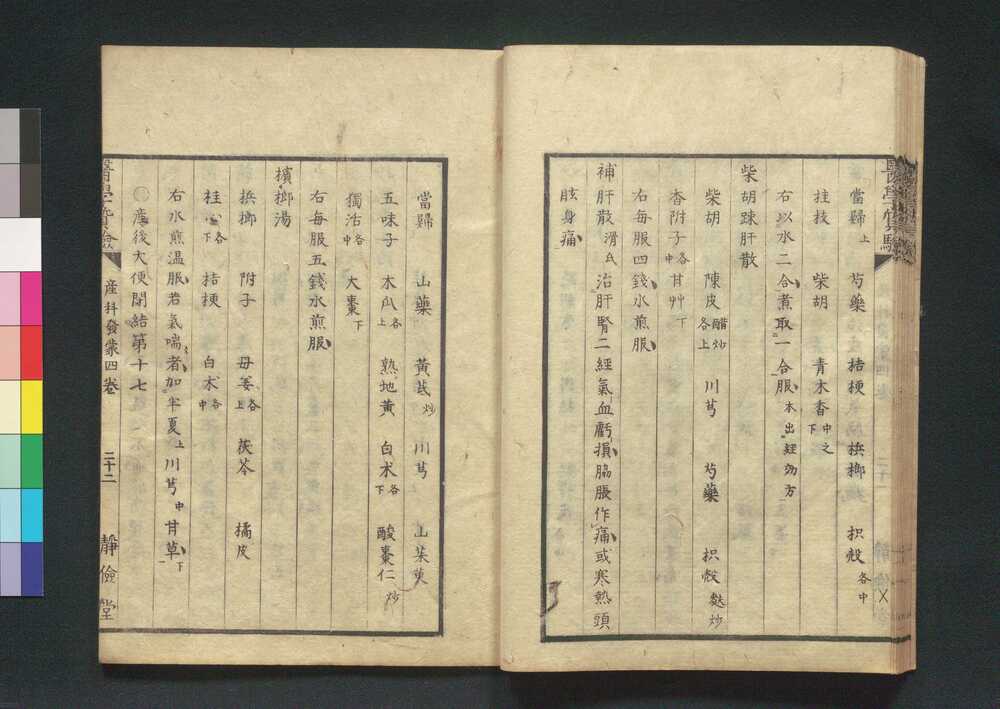 當歸上 芍藥 桔梗 梹榔 枳殻各中
桂枝 柴胡 青木香中之下
右以水二合煮取一合服本出經効方
柴胡踈肝散
柴胡 陳皮醋炒各上 川芎 芍藥 枳殻麩炒
香附子各中 甘艸下
右每服四錢水煎服
補肝散滑氏 治肝腎二經氣血虧損脇脹作痛或寒熱頭
眩身痛
當歸 山藥 黃茋炒 川芎 山茱萸
五味子 木瓜各上 熟地黃 白术各下 酸棗仁炒
獨活各中 大棗下
右每服五錢水煎服
檳榔湯
梹榔 附子 母姜各上 茯苓 橘皮
桂心各下 桔梗 白术各中
右水煎温服若氣喘者加半夏上川芎中甘草下
○產後大便閉結第十七
醫學質驗 產科發蒙四卷 二十二 靜儉堂